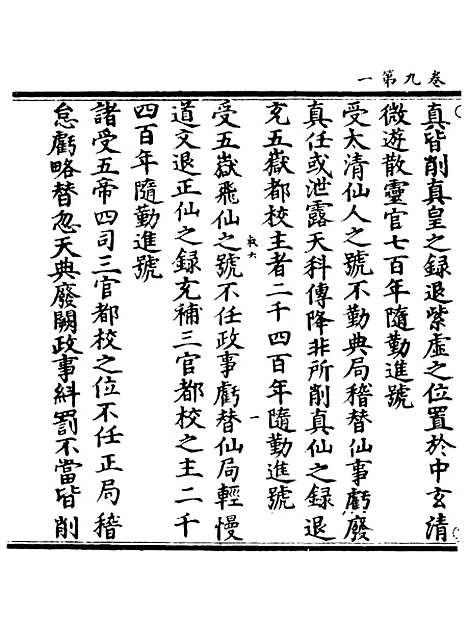 卷九第一
真皆削真皇之録退紫虛之位置於中玄清
微遊散靈官七百年隨勤進號
受太清仙人之號不勤典局稽替仙事虧廢
真任或泄露天科傳降非所削真仙之録退
充五嶽都校主者二千四百年隨勤進號
受五嶽飛仙之號不任政事虧替仙局輕慢
道文退正仙之録充補三官都校之主二千
四百年隨勤進號
諸受五帝四司三官都校之位不任正局稽
怠虧略替忽天典廢闕政事糾罰不當皆削